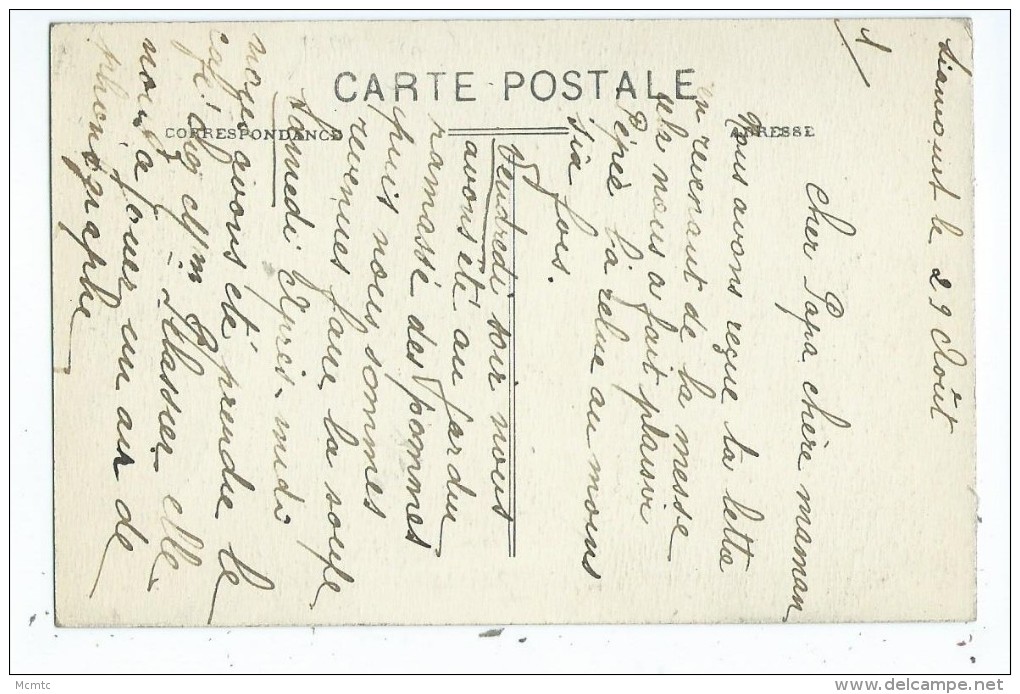 CARTE POSTALE
CORRESPONDANCE
ADRESSE
le 29 Août
1
Cher Papa chère maman
nous avons reçue ta lettre
en revenant de la messe
cela nous a fait plaisir
Pépée l'a relue au moins
six fois.
Vendredi soir nous
avons été au jardin
ramassé des pommes
puis nous sommes
revenues faire la soupe
Samedi Après-midi
nous avons été prendre le
café chez Mm elle
nous a jouer un air de
phonographe
Mcmtc
delcampe.net